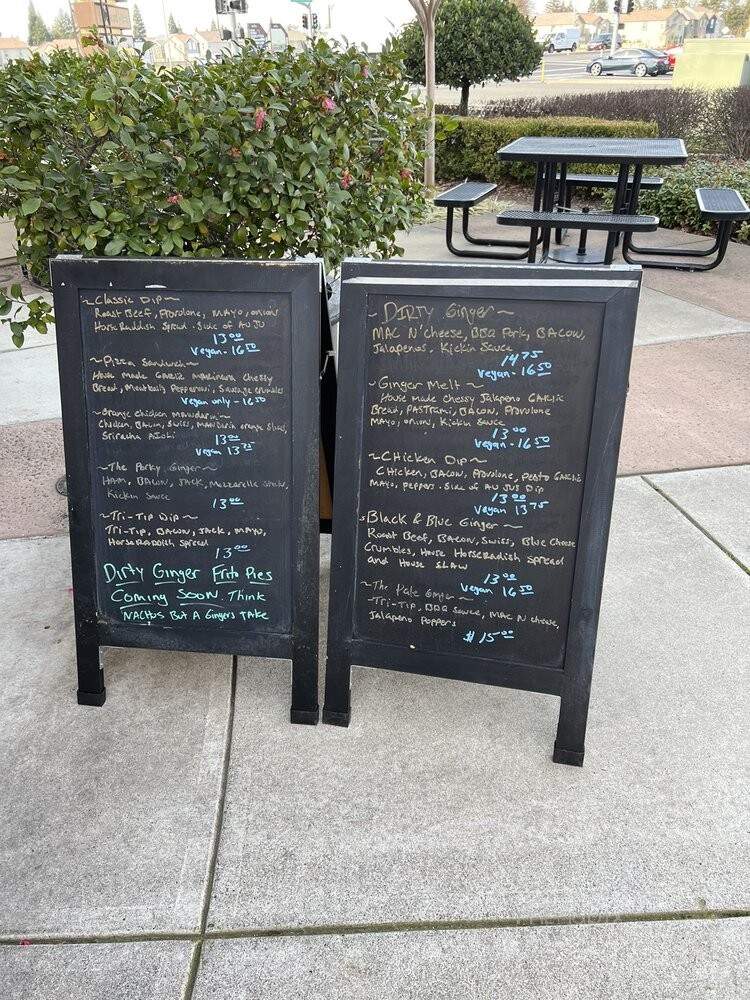 ~Classic Dip~
Roast Beef, Provolone, MAYO, onions
Horse Raddish Spread. Side of AU JU
13.00
Vegan - 16.50
~Pizza Sandwich~
House made Garlic marinara chessy
Bread, Meatballs Pepperoni, Sausage crumbles
Vegan only - 16.50
~Orange chicken mandarin~
Chicken, Bacon, Swiss, mandarin orange Slaw,
Sriratha Aioki
13.00
Vegan 13.75
~The Porky Ginger~
HAM, BACON, JACK, Mozzarella stick,
Kickin Sauce
13.00
~Tri-Tip Dip~
Tri-Tip, BACON, JACK, MAYO,
HorseRaddish Spread
13.00
Dirty Ginger Frito Pies
Coming Soon. Think
NACHOS But A Gingers TAKE
~DIRTY Ginger~
MAC N' cheese, BBQ Pork, BACON,
Jalapenos, Kickin Sauce
14.75
Vegan - 16.50
~Ginger Melt~
House made chessy Jalapeno GARLIC
Bread, PASTrami, BACON, Provolone
MAYO, onions, Kickin Sauce
13.00
Vegan - 16.50
~CHicken Dip~
CHicken, BACON, Provolone, Pesto GARLIC
MAYO, peppers. Side of AU JUS Dip
13.00
Vegan 13.75
Black & Blue Ginger~
Roast Beef, Bacon, Swiss, Blue Cheese
Crumbles, House HorseRadish spread
and House SLAW
13.00
Vegan 16.50
~The Pale Ginger~
Tri-Tip, BBQ Sauce, MAC N cheese,
Jalapeno Poppers
$15.00